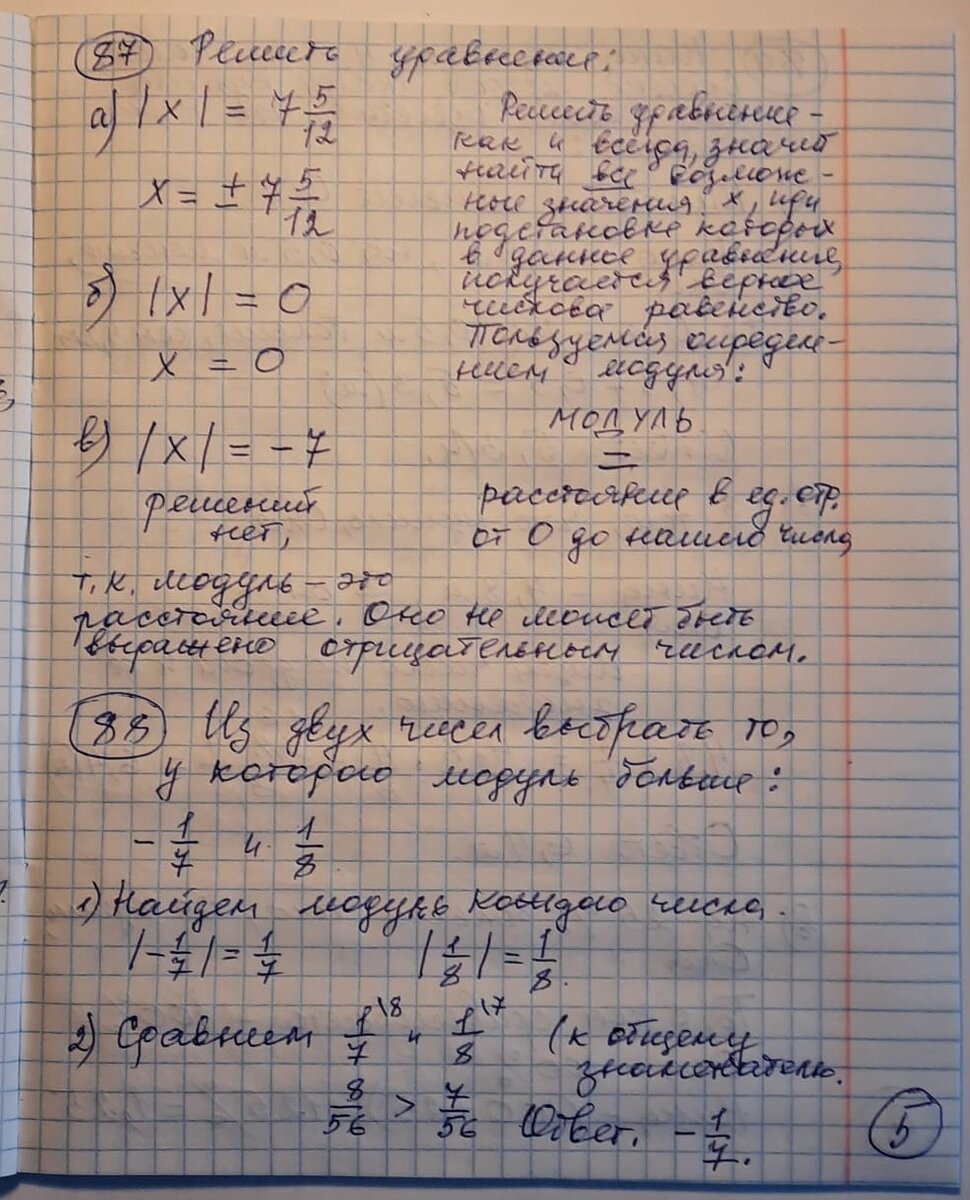 87 Решить уравнение:
а) |x| = 7 5/12
x = ± 7 5/12
б) |x| = 0
x = 0
в) |x| = -7
решений
нет,
Решить уравнение -
как и всегда, значит
найти все возмож-
ные значения x, при
подстановке которых
в данное уравнение,
получается верное
числовое равенство.
Пользуемся определе-
нием модуля:
МОДУЛЬ
=
расстояние в ед. отр.
от 0 до нашего числа
т.к. модуль - это
расстояние. Оно не может быть
выражено отрицательным числом.
88 Из двух чисел выбрать то,
у которого модуль больше:
- 1/7 и 1/8
1) Найдем модуль каждого числа.
|- 1/7| = 1/7 |1/8| = 1/8.
2) Сравним 1/7 \8 и 1/8 \7 (к общему
знаменателю.
8/56 > 7/56 Ответ. - 1/7.
5